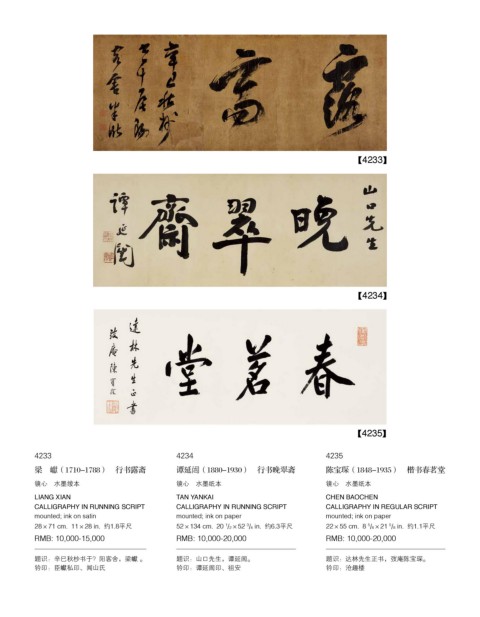 露齋
辛巳秋杪
客舍梁巘
【4233】
山口先生
晚翠齋
譚延闓
【4234】
春茗堂
達林先生正書
弢庵陳寶琛
【4235】
4233
梁　巘（1710–1788）　行书露斋
镜心　水墨绫本
LIANG XIAN
CALLIGRAPHY IN RUNNING SCRIPT
mounted; ink on satin
28×71 cm. 11×28 in. 约1.8平尺
RMB: 10,000-15,000
题识：辛巳秋杪书于？阳客舍，梁巘 。
钤印：臣巘私印、闻山氏
4234
谭延闿（1880–1930）　行书晚翠斋
镜心　水墨纸本
TAN YANKAI
CALLIGRAPHY IN RUNNING SCRIPT
mounted; ink on paper
52×134 cm. 20 1/2×52 3/4 in. 约6.3平尺
RMB: 10,000-20,000
题识：山口先生，谭延闿。
钤印：谭延闿印、祖安
4235
陈宝琛（1848–1935）　楷书春茗堂
镜心　水墨纸本
CHEN BAOCHEN
CALLIGRAPHY IN REGULAR SCRIPT
mounted; ink on paper
22×55 cm. 8 5/8×21 5/8 in. 约1.1平尺
RMB: 10,000-20,000
题识：达林先生正书，弢庵陈宝琛。
钤印：沧趣楼